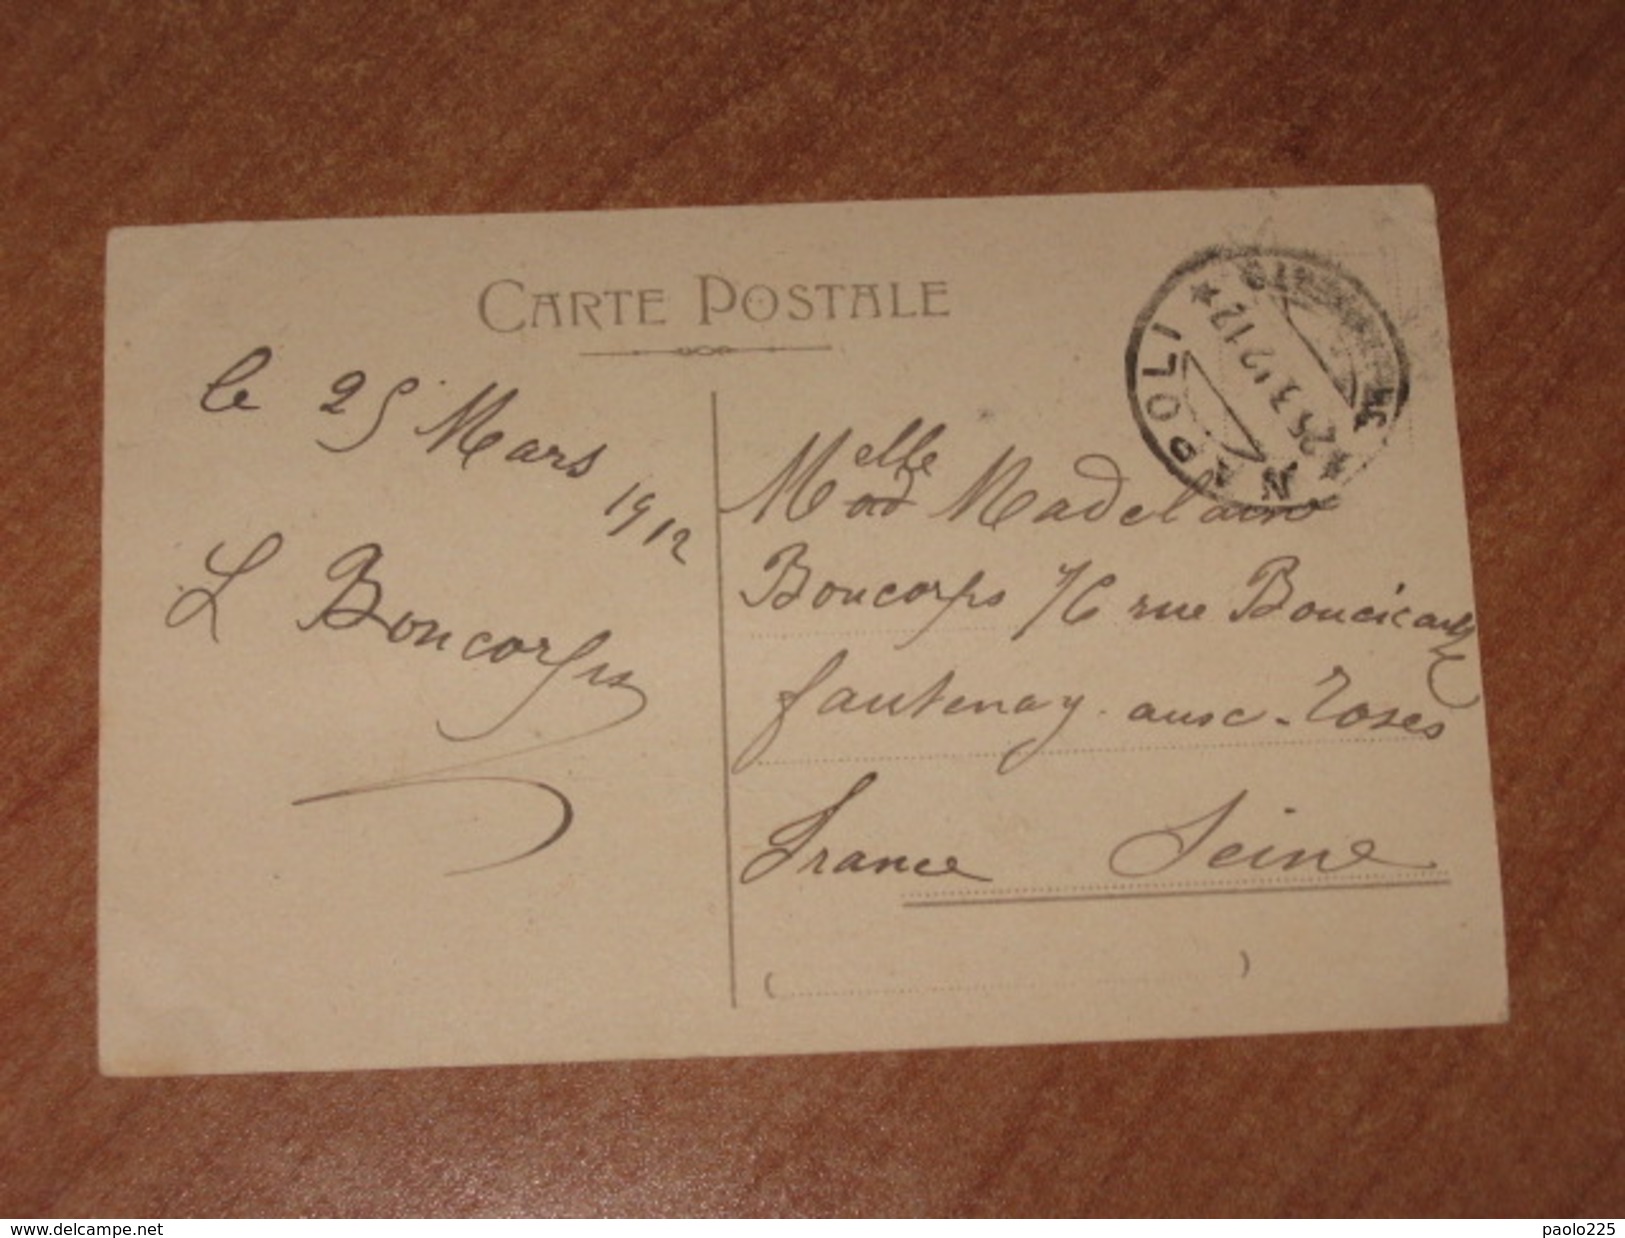 CARTE POSTALE
le 25 Mars 1912
L Boncorps
NAPOLI
25.3.12 12
Melle Madelaine
Boncorps 76 rue Boucicault
fautenay-ausc-roses
France Seine
( )
www.delcampe.net
paolo225